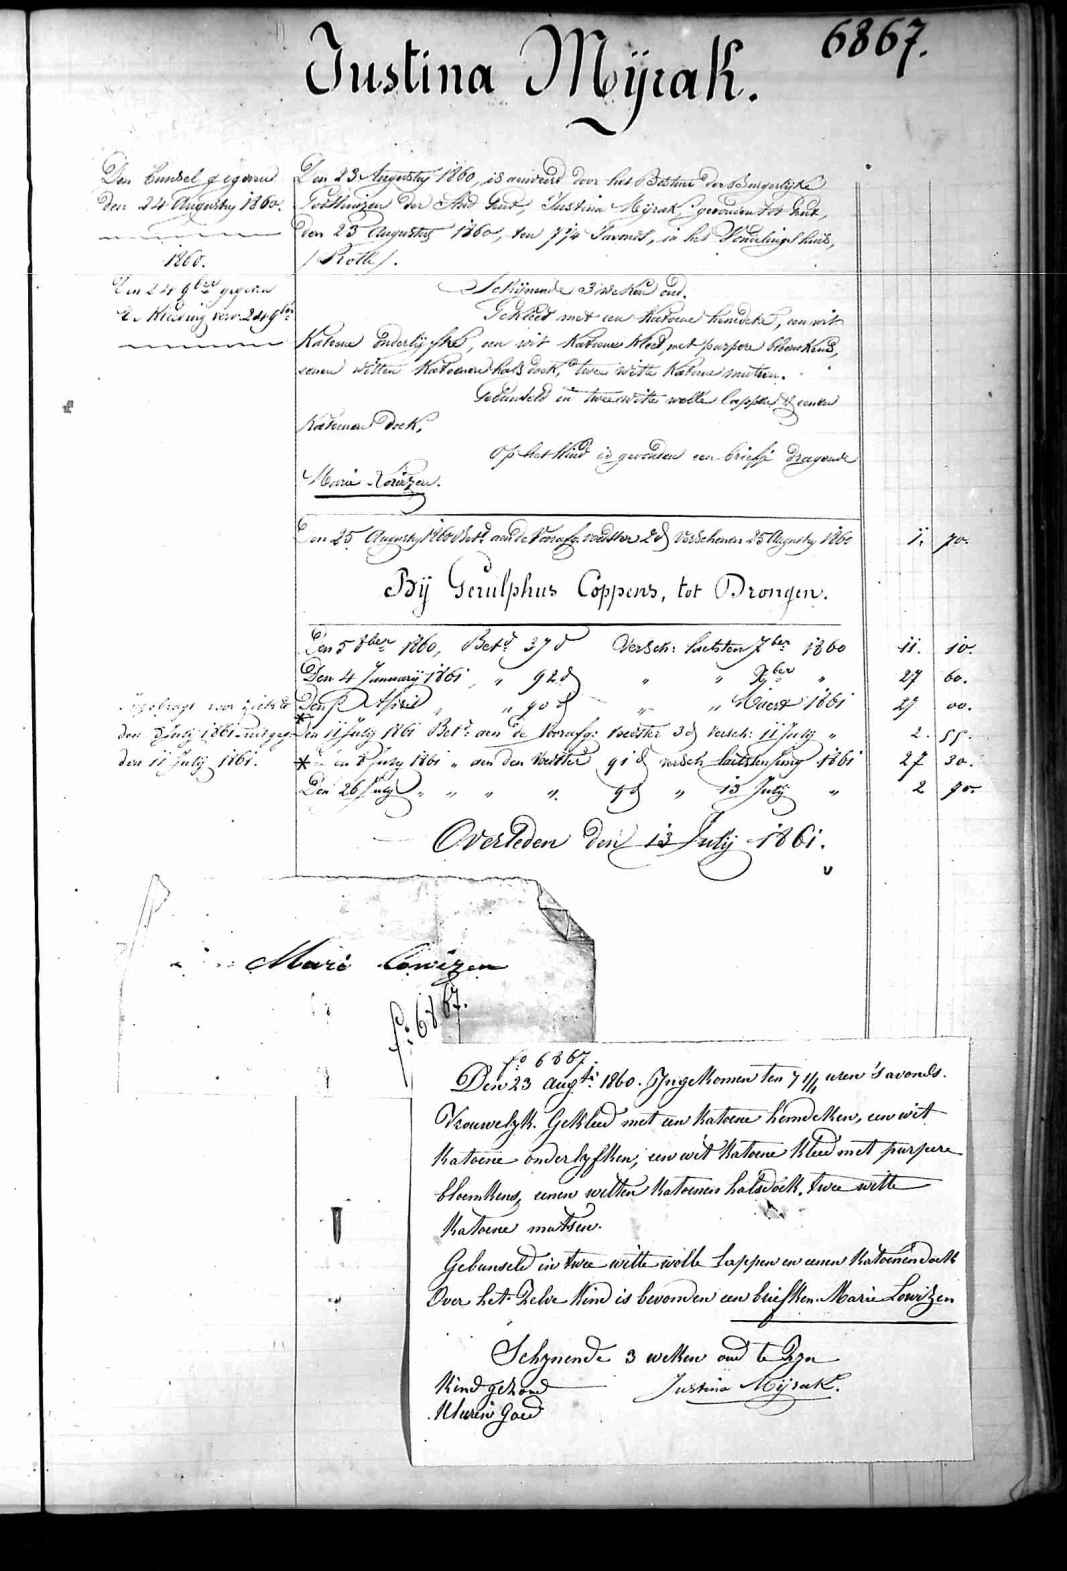 6867.
Justina Mÿrak.
Den bunsel gegeven
den 24 Augusty 1860.
1860.
Den 24 9ber gegeven
kleeding voor 24 9ber
Den 23 Augusty 1860, is aenveerd door het Bestuer der Burgerlyke
Godshuizen der Stad Gent, Justina Mÿrak, gevonden tot Gent,
den 23 Augustus 1860, ten 7 1/4 's avonds, in het Vondelingshuis,
/Rolle/.
Schijnende 3 weken oud.
Gekleed met een katoene hemdeke, een wit
katoene onderlyfke, een wit katoene kleed met purpere bloemkens,
eenen witten katoenen halsdoek, twee witte katoene mutsen.
Gebunseld in twee witte wolle lappen & eenen
katoenen doek.
Op het kind is gevonden een briefje dragende
Marie Lowizen.
Den 25 Augusty 1860 Betd aen de Voorafg. voedster 2 d verschenen 25 Augusty 1860 1. 70.
Bÿ Gerulphus Coppens, tot Drongen.
Den 5 8ber 1860, Betd 37 d Versch: laetsten 7ber 1860 11. 10.
Den 4 January 1861 " 92 d " " Xber " 27 60.
Den April " " 90 d " " Maert 1861 27 00.
den July 1861 uitgeg.
* Den 11 July 1861 Betd aen de Voorafg: voedster 3 d versch: 11 July " 2. 55.
den 11 July 1861.
* Den 8 July 1861 " aen den voedster 91 d versch laetsten Juny 1861 27 30.
Den 26 July " " " " 9 d " 13 July " 2 70.
Overleden den 13 Julÿ 1861.
Mari Lowizen
fo: 6867.
fo 6867.
Den 23 augti 1860. Ingekomen ten 7 1/4 uren 's avonds.
Vrouwelyk. Gekleed met een katoene hemdeken, een wit
katoene onderlyfken, een wit katoene kleed met purpere
bloemkens, eenen witten katoenen halsdoek. twee witte
katoene mutsen.
Gebunseld in twee witte wolle lappen en eenen katoenen doek
Over het Zelve kind is bevonden een briefken. Marie Lowizen
Schynende 3 weken oud te Zyn
Kind gezond Justina Mÿrak.
kleuren Goed